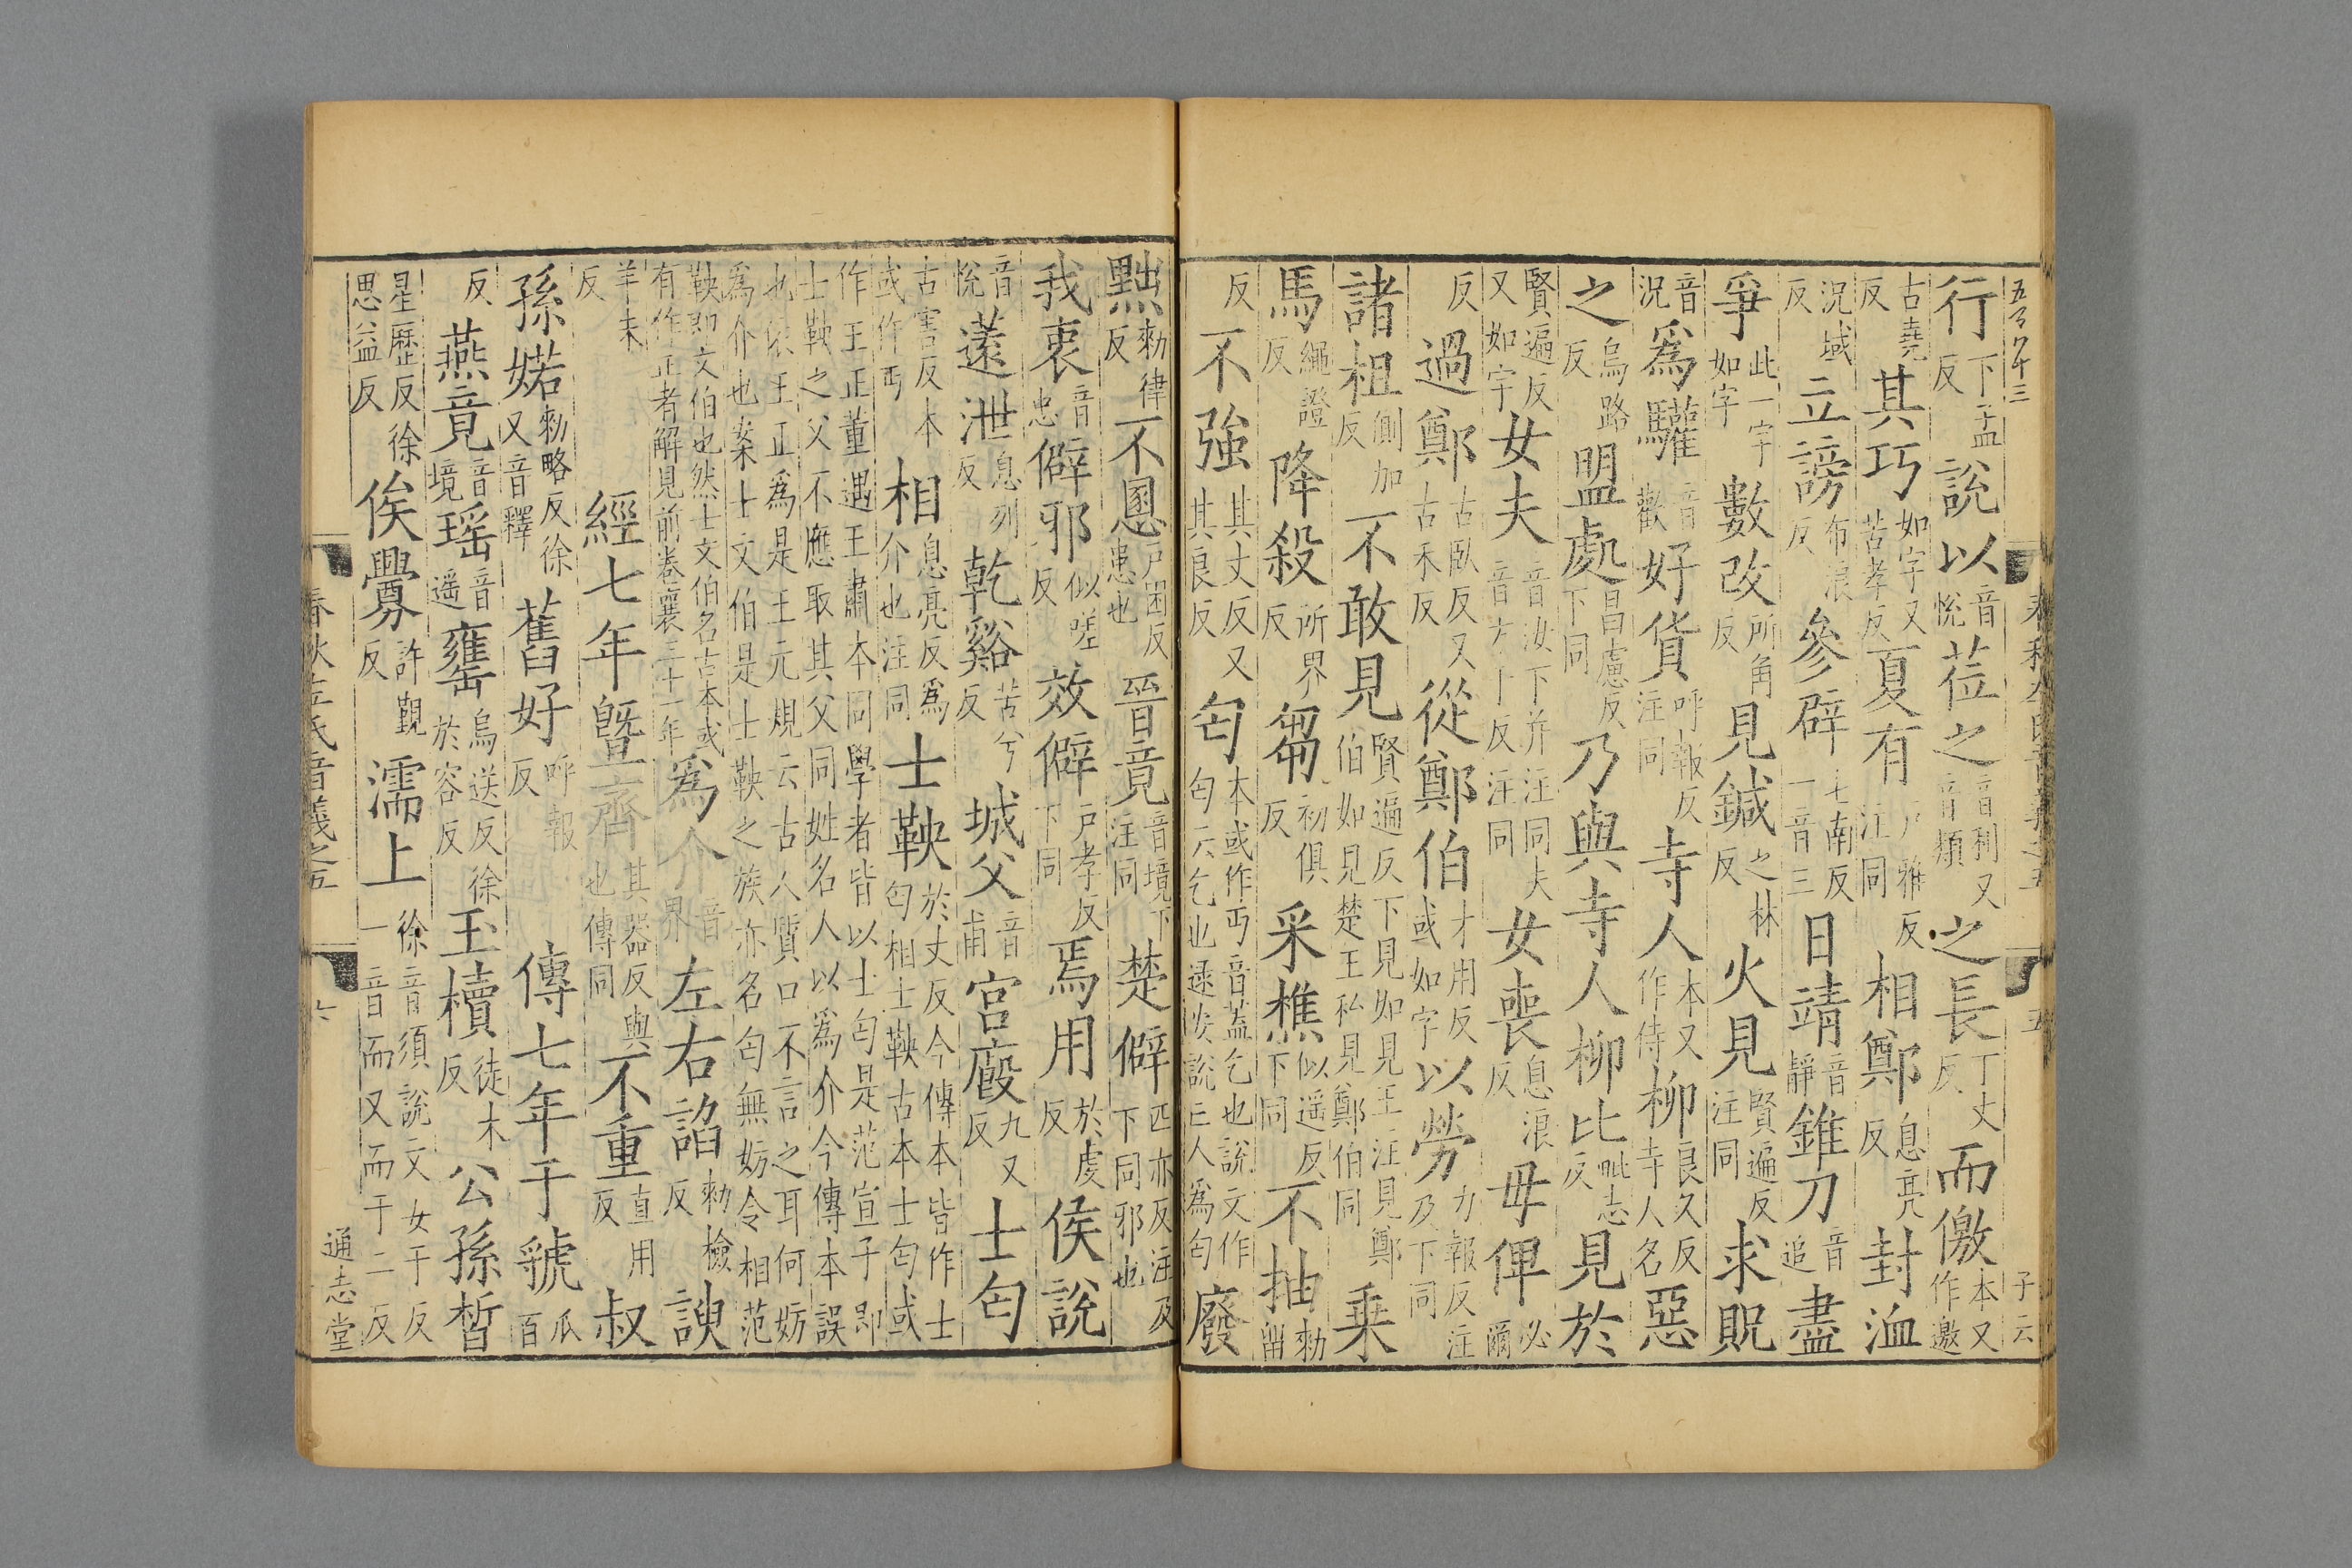 春秋左氏音義之五 五 子云
行下孟反說以音悅莅之音利又音類之長丁丈反而儌本又作邀
古堯反其巧如字又苦孝反夏有戶雅反注同相鄭息亮反封洫
況域反立謗布浪反參辟七南反一音三日靖音靜錐刀音追盡
爭此一字如字數改所角反見鍼之林反火見賢遍反注同求貺
音況爲驩音歡好貨呼報反注同寺人本又作侍柳良久反寺人名惡
之烏路反盟處昌慮反下同乃與寺人柳比毗志反見於
賢遍反又如字女夫音汝下并注同夫音方于反注同女喪息浪反毋俾必爾
反過鄭古臥反又古禾反從鄭伯才用反或如字以勞力報反注及下同
諸祖側加反不敢見賢遍反下見如見王注見鄭伯如見楚王私見鄭伯同乗
馬繩證反降殺所界反芻初俱反采樵似遥反下同不抽勑留
反不強其丈反又其良反匄本或作丐音蓋乞也說文作匄云乞也逯安說亡人爲匄廢
黜勑律反不慁戶困反患也晉竟音境下注同楚僻匹亦反注及下同邪也
我衷音忠僻邪似嗟反效僻戶孝反下同焉用於虔反侯說
音悅薳泄息列反乾谿苦兮反城父音甫宮廏九又反士匄
古害反本或作丐相息亮反爲介也注同士鞅於丈反今傳本皆作士匄相士鞅古本士匄或
作王正董遇王肅本同學者皆以士匄是范宣子即士鞅之父不應取其父同姓名人以爲介今傳本誤
也依王正爲是王元規云古人質口不言之耳何妨爲介也案士文伯是士鞅之族亦名匄無妨令相范
鞅即文伯也然士文伯名古本或有作正者解見前卷襄三十一年爲介音界左右諂勑檢反諛
羊朱反經七年曁齊其器反與也傳同不重直用反叔
孫婼勑略反徐又音釋舊好呼報反傳七年于虢瓜百
反燕竟音境瑶音遥罋烏送反徐於容反玉櫝徒木反公孫晳
星歷反徐思益反俟釁許覲反濡上徐音須說文女于反一音而又而于二反
春秋左氏音義之五 六 通志堂